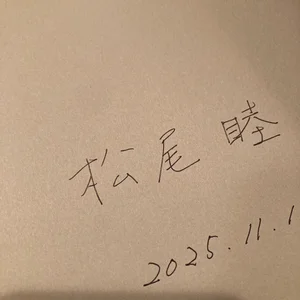 松尾 睦
2025.11.1